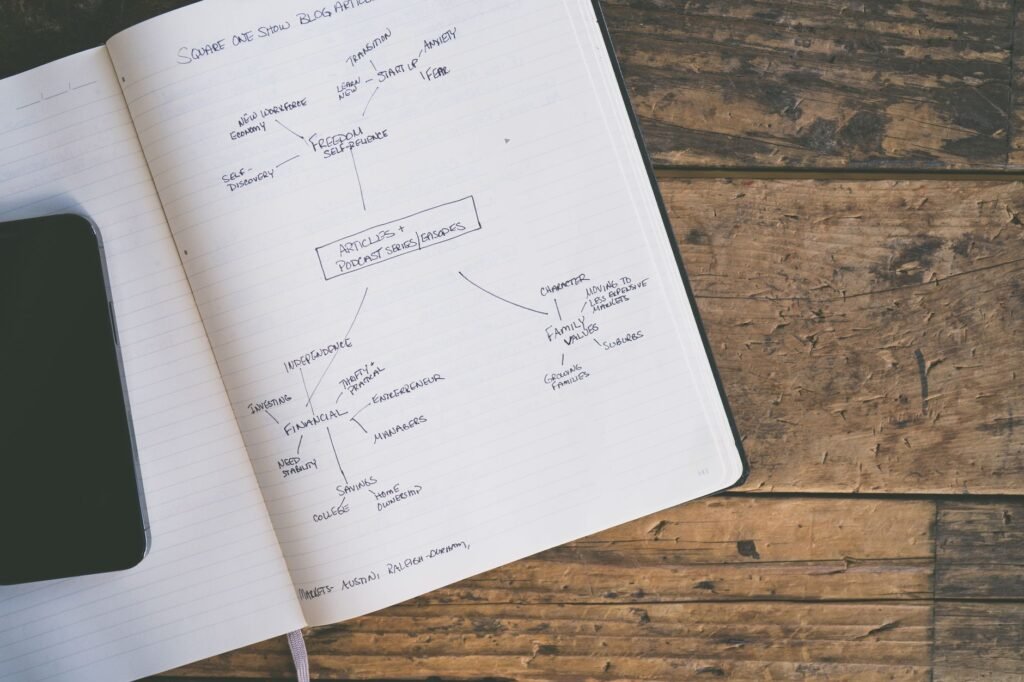 SQUARE ONE SHOW BLOG ARTICL
TRANSITION
ANXIETY
START UP
LEARN
NEW
FEAR
NEW WORKFORCE
ECONOMY
FREEDOM
SELF-RELIENCE
SELF-
DISCOVERY
ARTICLES +
PODCAST SERIES/EPISODES
CHARACTER
MOVING TO
LESS EXPENSIVE
MARKETS
FAMILY
VALUES
SUBURBS
GROWING
FAMILIES
INDEPENDENCE
THRIFTY +
PRATICAL
INVESTING
ENTREPRENEUR
FINANCIAL
MANAGERS
NEED
STABILITY
SAVINGS
HOME
OWNERSHIP
COLLEGE
MARKETS- AUSTIN, RALEIGH-DURHAM,